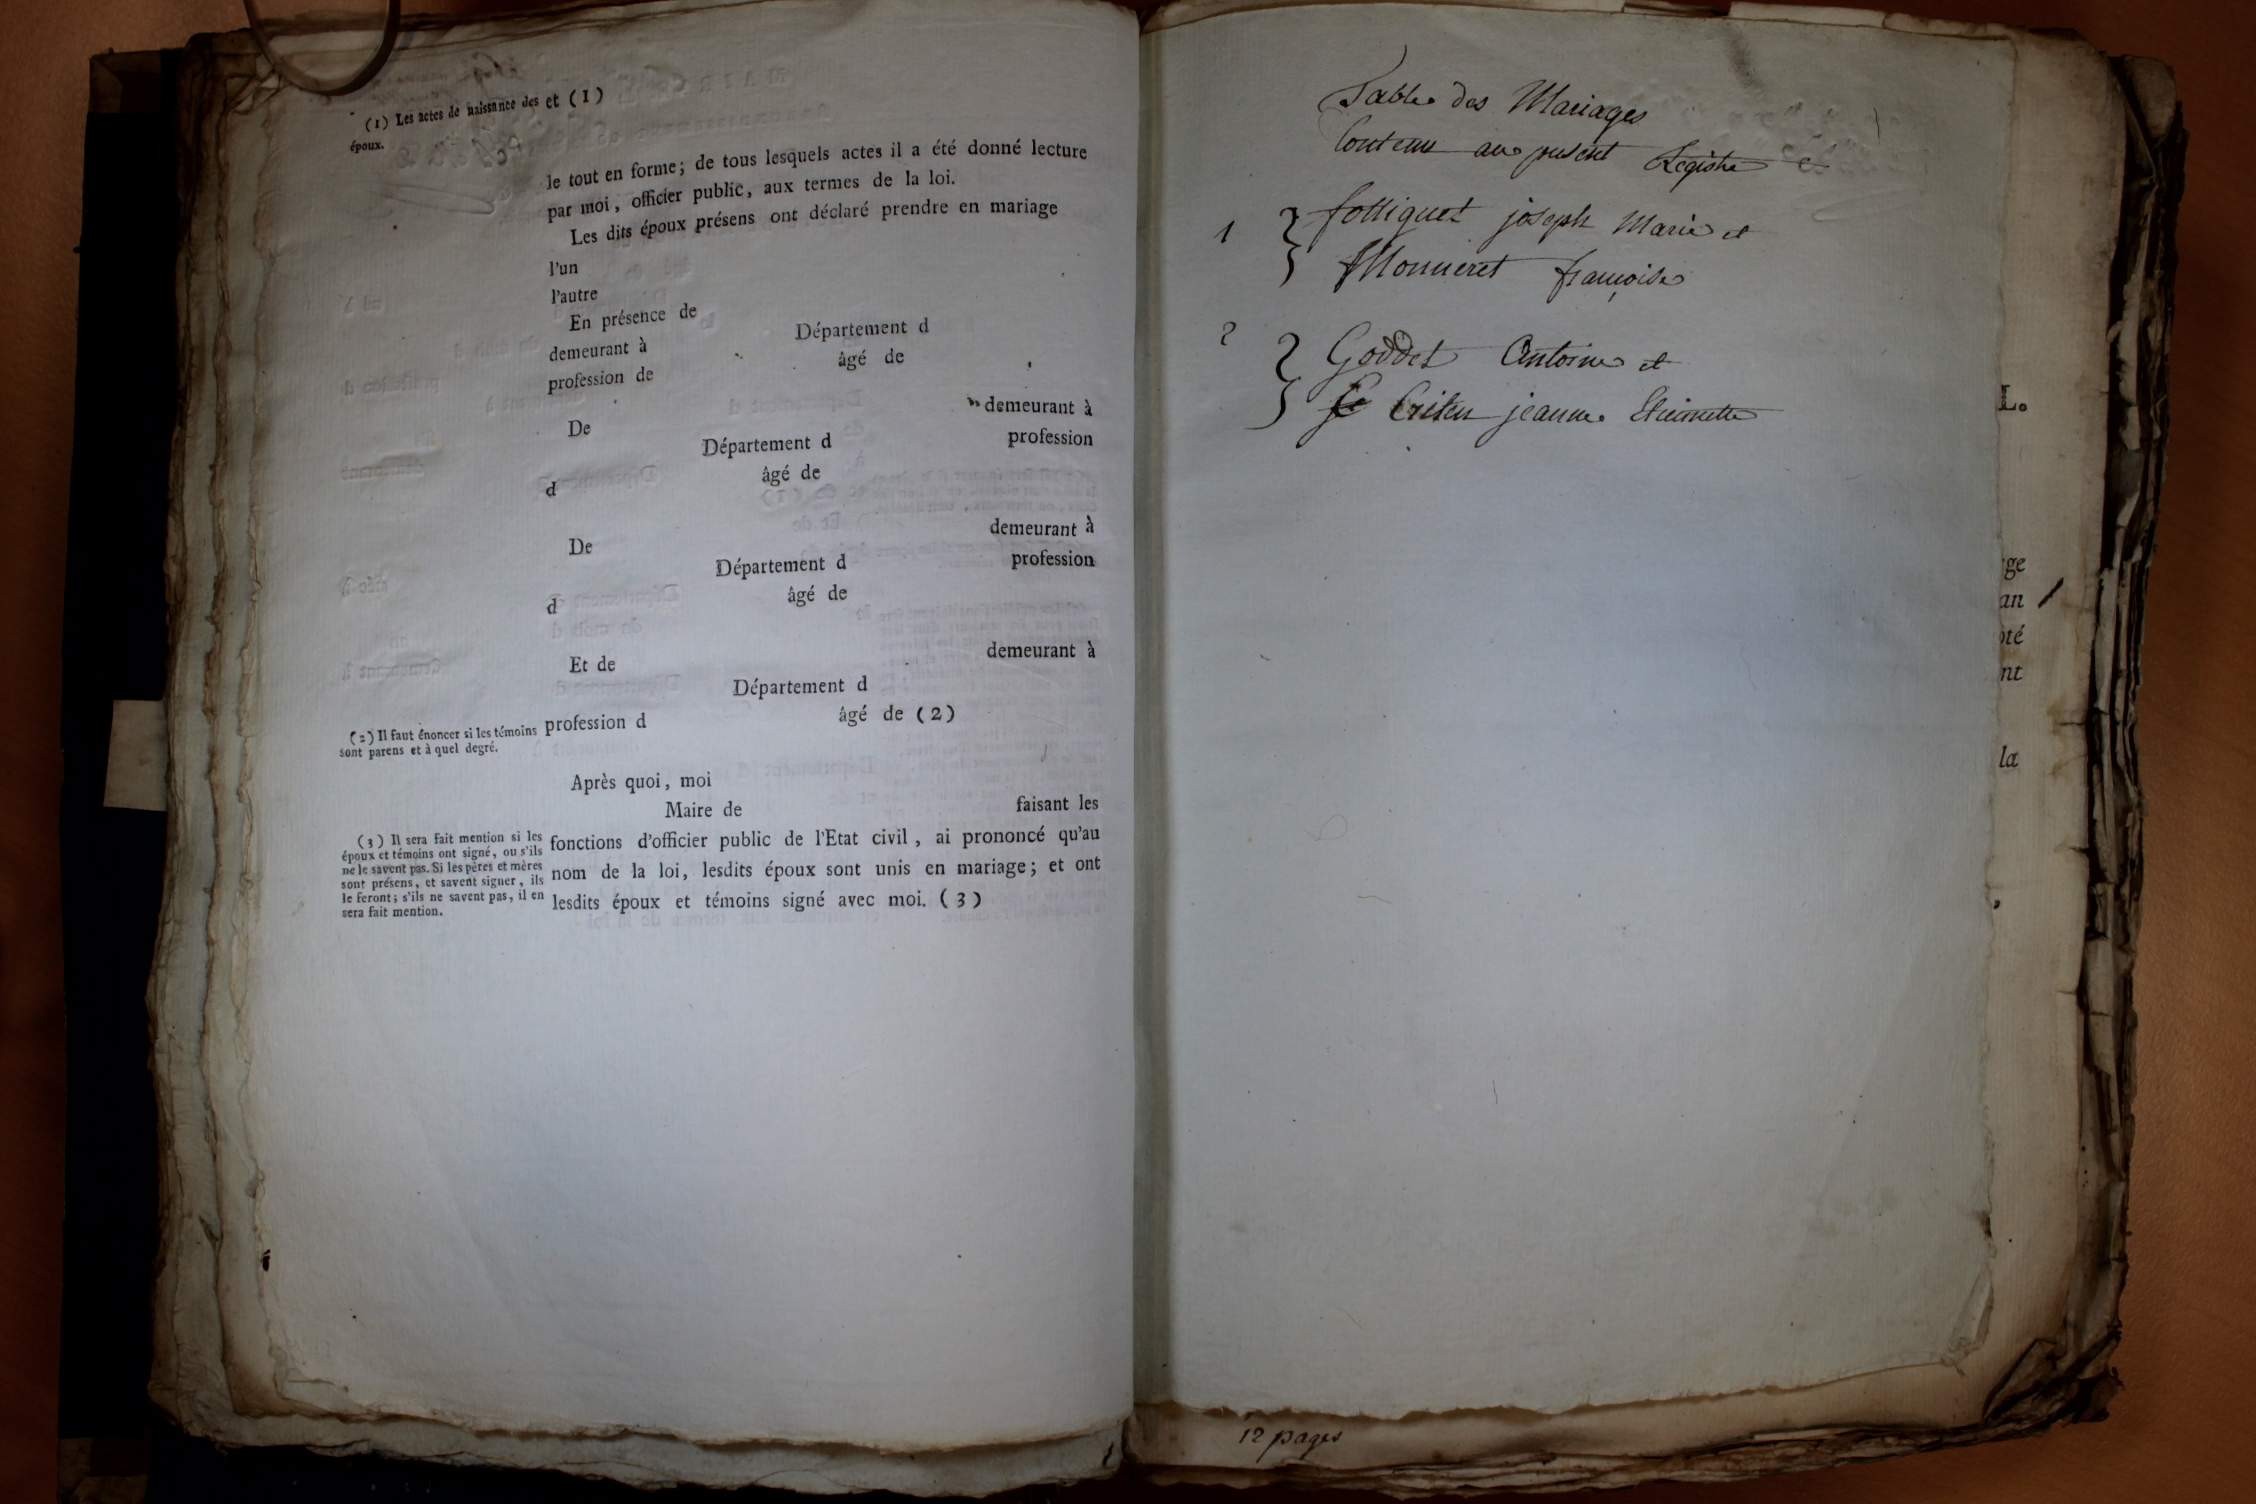 (1) Les actes de naissance des
époux.
et (1)
le tout en forme; de tous lesquels actes il a été donné lecture
par moi, officier public, aux termes de la loi.
Les dits époux présens ont déclaré prendre en mariage
l'un
l'autre
En présence de
demeurant à Département d
profession de âgé de
De demeurant à
Département d profession
d âgé de
De demeurant à
Département d profession
d âgé de
Et de demeurant à
Département d
profession d âgé de (2)
(2) Il faut énoncer si les témoins
sont parens et à quel degré.
Après quoi, moi
Maire de faisant les
fonctions d'officier public de l'Etat civil, ai prononcé qu'au
nom de la loi, lesdits époux sont unis en mariage; et ont
lesdits époux et témoins signé avec moi. (3)
(3) Il sera fait mention si les
époux et témoins ont signé, ou s'ils
ne le savent pas. Si les pères et mères
sont présens, et savent signer, ils
le feront; s'ils ne savent pas, il en
sera fait mention.
Table des Mariages
Contenu au présent Registre
1 } folliquet joseph Marie et
Monneret françoise
2 } Goddet Antoine et
jeanne Etiennette
L.
ge
an
oté
nt
la
12 pages